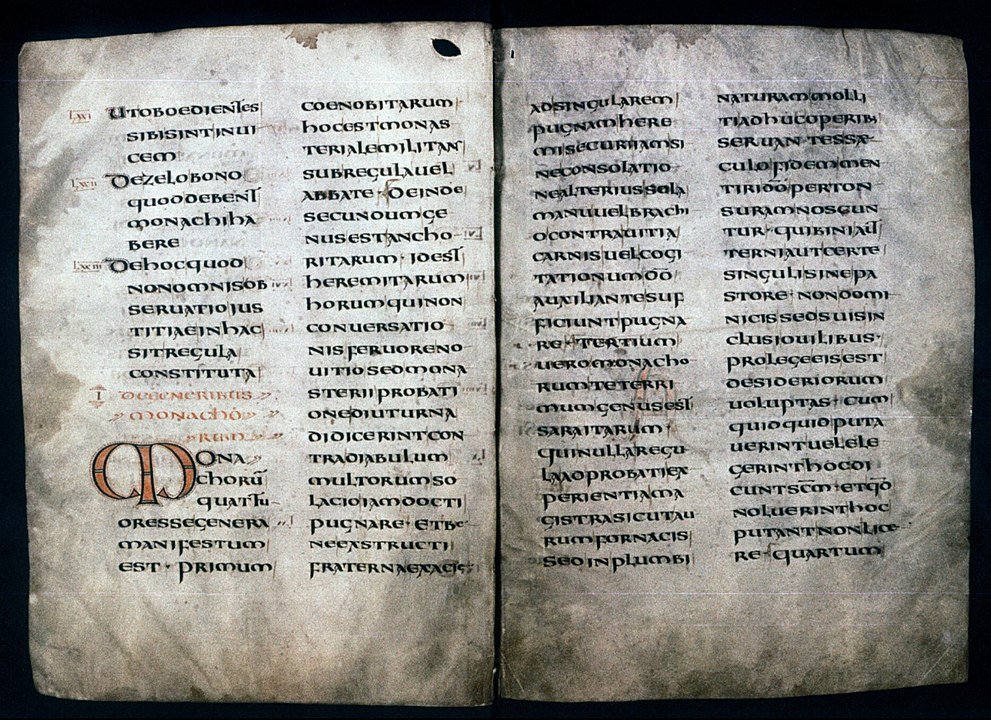 LXXI UTOBOEDIENTES
SIBISINTINUI
CEM
LXXII DEZELOBONO
QUODDEBENT
MONACHIHA
BERE
LXXIII DEHOCQUOD
NONOMNISOB
SERUATIOIUS
TITIAEINHAC
SITREGULA
CONSTITUTA
I DEGENERIBUS
MONACHO
RUM
MONA
CHORŪ
QUATTU
ORESSEGENERA
MANIFESTUM
EST · PRIMUM
COENOBITARUM
HOCESTMONAS
TERIALEMILITAN
SUBREGULAUEL
ABBATE · DEINDE
SECUNDUMGE
NUSESTANCHO
RITARUM · IDEST
HEREMITARUM
HORUMQUINON
CONUERSATIO
NISFERUORENO
UITIOSEDMONA
STERIIPROBATI
ONEDIUTURNA
DIDICERINTCON
TRADIABULUM
MULTORUMSO
LACIOIAMDOCTI
PUGNARE · ETBE
NEEXSTRUCTI
FRATERNAEXACIE
ADSINGULAREM
PUGNAMHERE
MISECURIIAMSI
NECONSOLATIO
NEALTERIUSSOLA
MANUUELBRACHI
OCONTRAUITIA
CARNISUELCOGI
TATIONUMDŌ
AUXILIANTESUF
FICIUNTPUGNA
RE · TERTIUM
UEROMONACHO
RUMTETERRI
MUMGENUSEST
SARAITARUM
QUINULLAREGU
LAADPROBATIEX
PERIENTIAMA
GISTRASICUTAU
RUMFORNACIS
SEDINPLUMBI
NATURAMMOLLI
TIADHUCOPERIBƷ
SERUANTESSAE
CULOFIDEMMEN
TIRIDŌPERTON
SURAMNOSCUN
TUR · QUIBINIAUT
TERNIAUTCERTE
SINGULISINEPA
STORE · NONDOMI
NICISSEDSUISIN
CLUSIOUILIBUS ·
PROLEGEEISEST
DESIDERIORUM
UOLUPTAS · CUM
QUIDQUIDPUTA
UERINTUELELE
GERINTHOCDI
CUNTSC̄M · ETQD̄
NOLUERINTHOC
PUTANTNONLICE
RE · QUARTUM